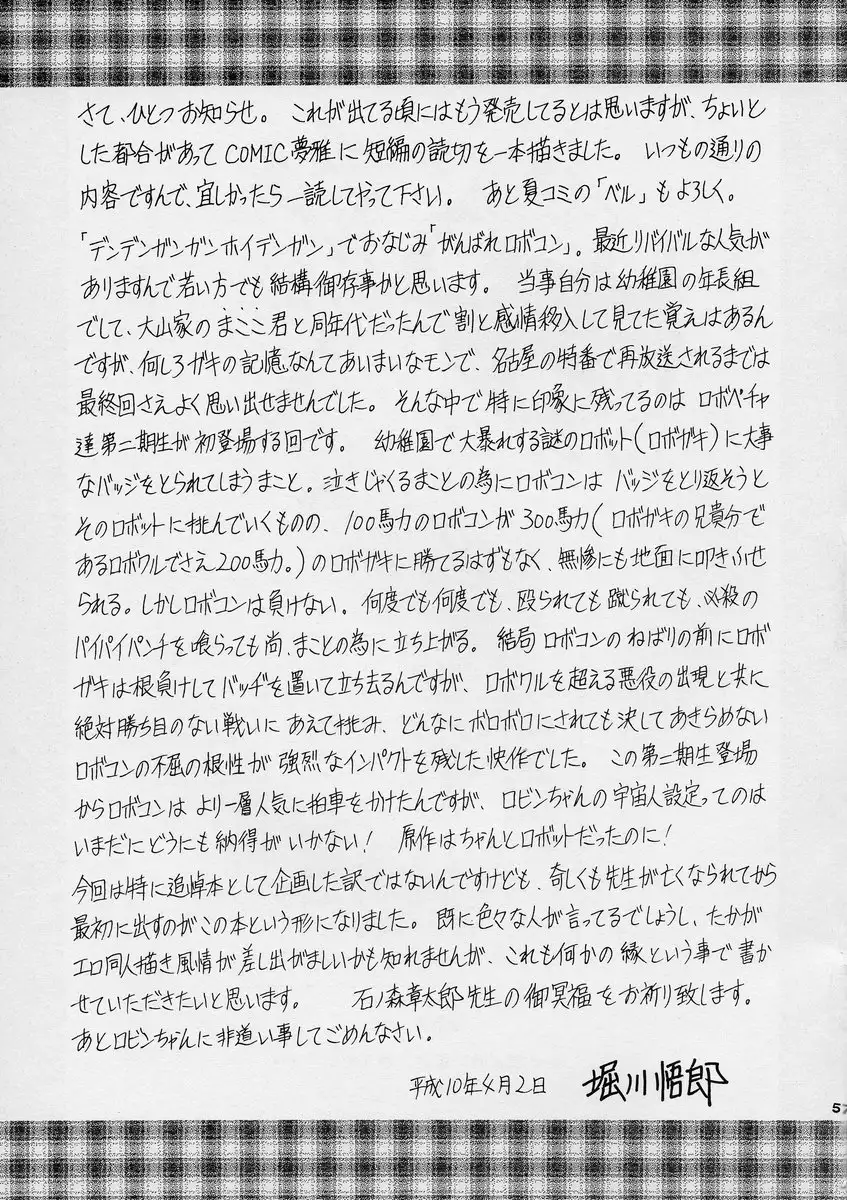 さて、ひとつお知らせ。 これが出てる頃にはもう発売してるとは思いますが、ちょいと
した都合があって COMIC夢雅に 短編の読切を一本描きました。 いつもの通りの
内容ですんで、宜しかったら一読してやって下さい。 あと夏コミの「ベル」もよろしく。
「デンデンガンガンホイデンガン」でおなじみ「がんばれロボコン」。最近リバイバルな人気が
ありますんで若い方でも結構御存事かと思います。 当事自分は幼稚園の年長組
でして、大山家のまここ君と同年代だったんで割と感情移入して見てた覚えはあるん
ですが、何しろガキの記憶なんてあいまいなモンで、名古屋の特番で再放送されるまでは
最終回さえよく思い出せませんでした。 そんな中で特に印象に残ってるのは ロボペチャ
達第二期生が初登場する回です。 幼稚園で大暴れする謎のロボット(ロボガキ)に大事
なバッジをとられてしまうまこと。泣きじゃくるまことの為にロボコンは バッジをとり返そうと
そのロボットに挑んでいくものの、100馬力のロボコンが300馬力( ロボガキの兄貴分で
あるロボワルでさえ200馬力。)のロボガキに勝てるはずもなく、無惨にも地面に叩きふせ
られる。しかしロボコンは負けない。何度でも何度でも、殴られても蹴られても、必殺の
パイパイパンチを喰らっても尚、まことの為に立ち上がる。 結局ロボコンのねばりの前にロボ
ガキは根負けしてバッヂを置いて立ち去るんですが、ロボワルを超える悪役の出現と共に
絶対勝ち目のない戦いにあえて挑み、どんなにボロボロにされても決してあきらめない
ロボコンの不屈の根性が 強烈なインパクトを残した快作でした。 この第二期生登場
からロボコンは より一層人気に拍車をかけたんですが、ロビンちゃんの宇宙人設定ってのは
いまだにどうにも納得がいかない! 原作はちゃんとロボットだったのに!
今回は特に追悼本として企画した訳ではないんですけども、奇しくも先生が亡くなられてから
最初に出すのがこの本という形になりました。既に色々な人が言ってるでしょうし、たかが
エロ同人描き風情が差し出がましいかも知れませんが、これも何かの縁という事で書か
せていただきたいと思います。 石ノ森章太郎先生の御冥福をお祈り致します。
あとロビンちゃんに非道い事してごめんなさい。
平成10年4月2日 堀川悟郎
57